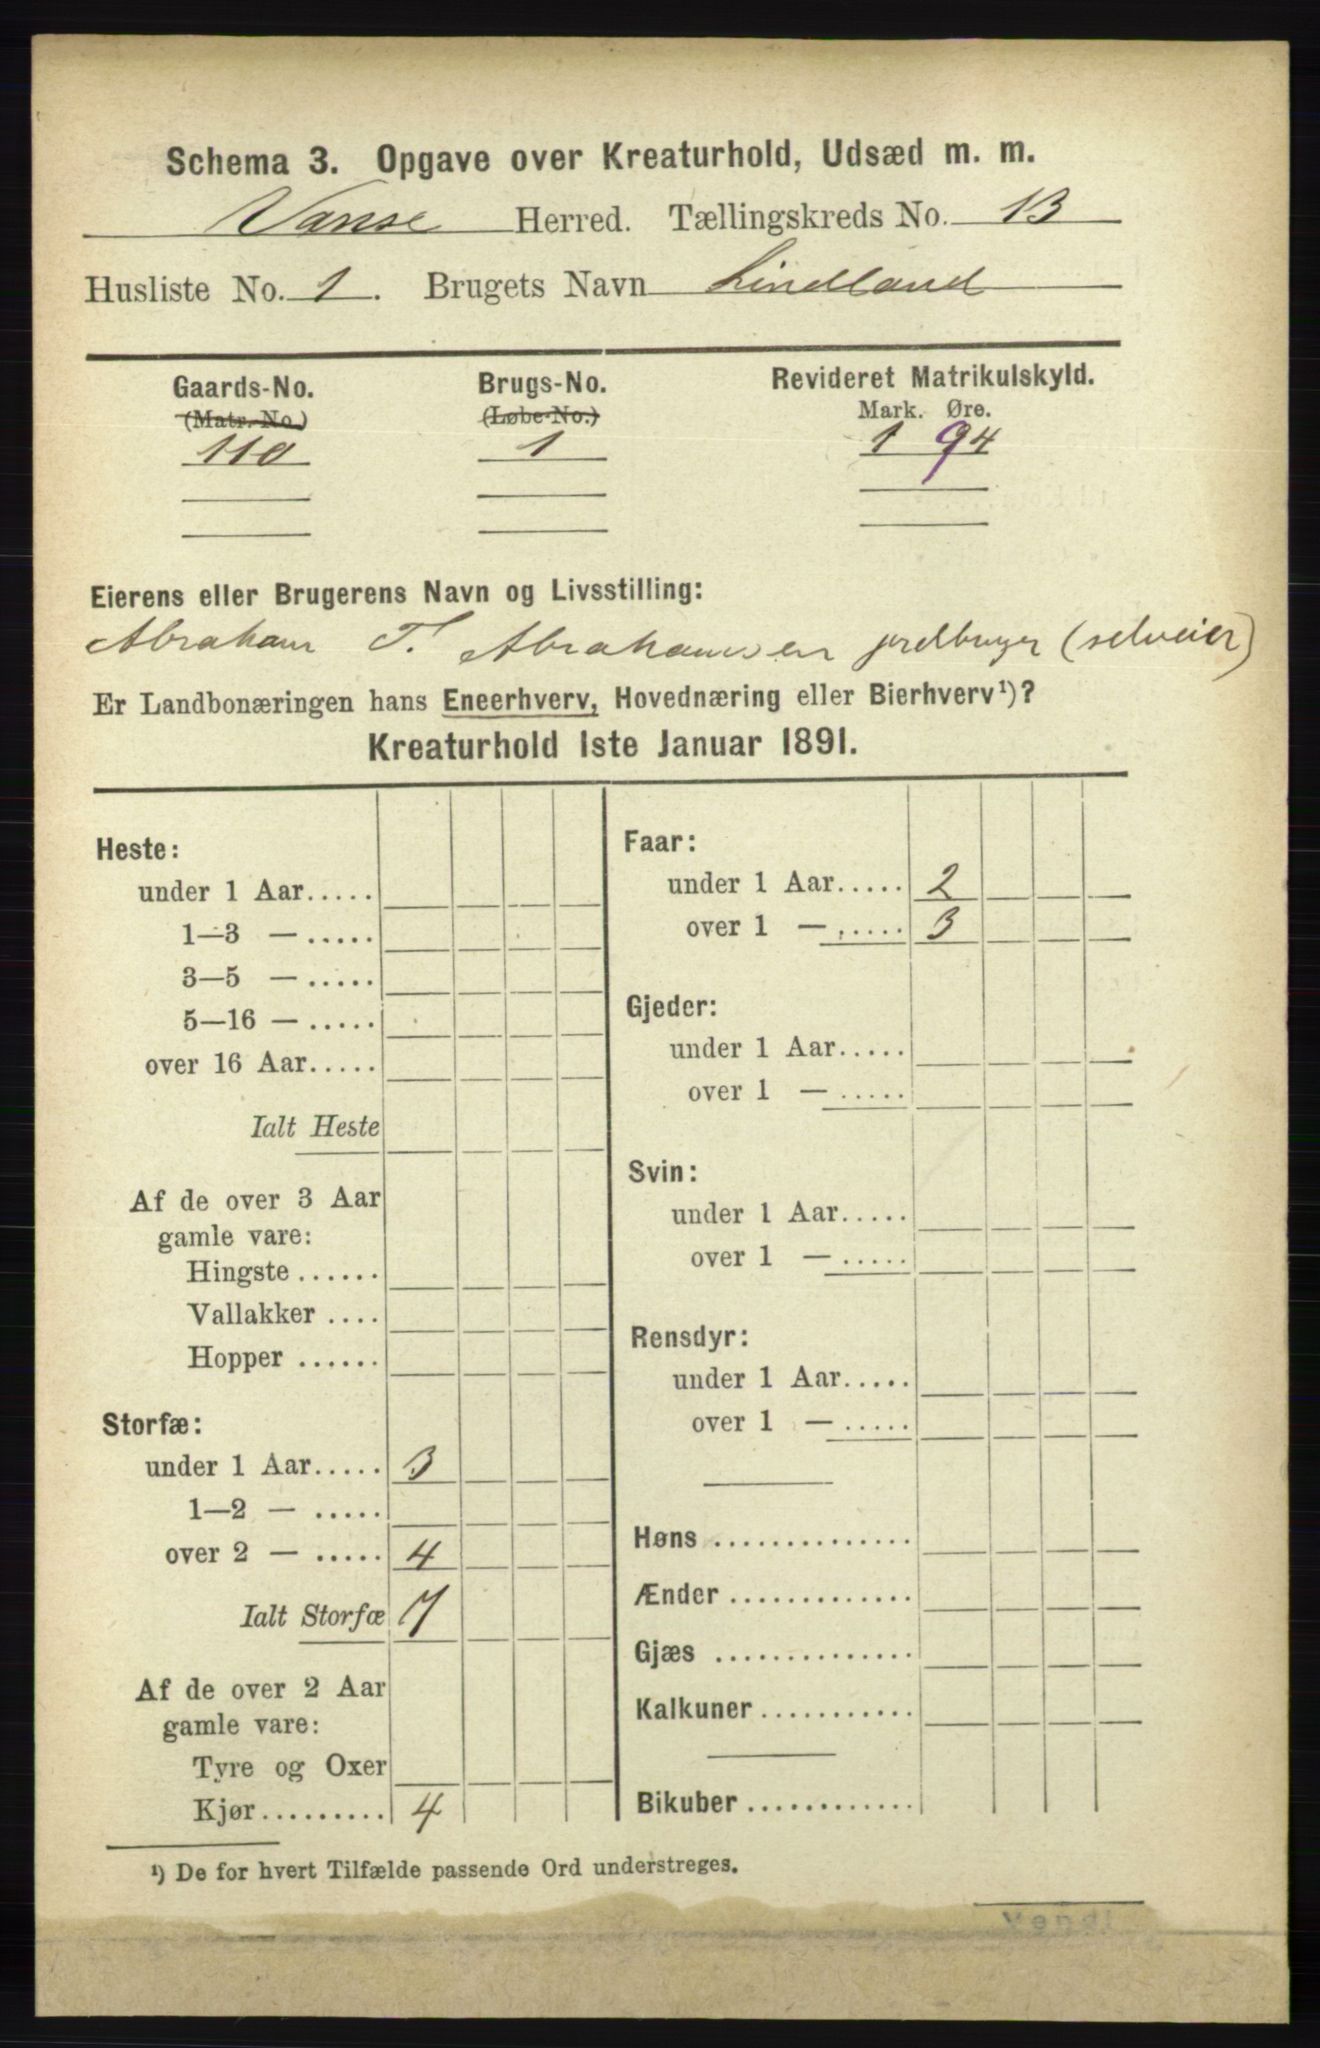 Schema 3. Opgave over Kreaturhold, Udsæd m. m.
Vanse Herred. Tællingskreds No. 13
Husliste No. 1. Brugets Navn Lindland
Gaards-No. Brugs-No. Revideret Matrikulskyld.
(Matr. No.) (Løbe-No.) Mark. Øre.
110 1 1 94
Eierens eller Brugerens Navn og Livsstilling:
Abraham T. Abrahamsen jordbruger (selveier)
Er Landbonæringen hans Eneerhverv, Hovednæring eller Bierhverv¹)?
Kreaturhold 1ste Januar 1891.
Heste:
under 1 Aar.....
1—3 — .....
3—5 — .....
5—16 — .....
over 16 Aar.....
Ialt Heste
Af de over 3 Aar
gamle vare:
Hingste ......
Vallakker ....
Hopper ......
Storfæ:
under 1 Aar..... 3
1—2 — .....
over 2 — ..... 4
Ialt Storfæ 7
Af de over 2 Aar
gamle vare:
Tyre og Oxer
Kjør......... 4
Faar:
under 1 Aar..... 2
over 1 — ..... 3
Gjeder:
under 1 Aar.....
over 1 — .....
Svin:
under 1 Aar.....
over 1 — .....
Rensdyr:
under 1 Aar.....
over 1 — .....
Høns ..............
Ænder .............
Gjæs ..............
Kalkuner ...........
Bikuber ............
¹) De for hvert Tilfælde passende Ord understreges.
Vend!